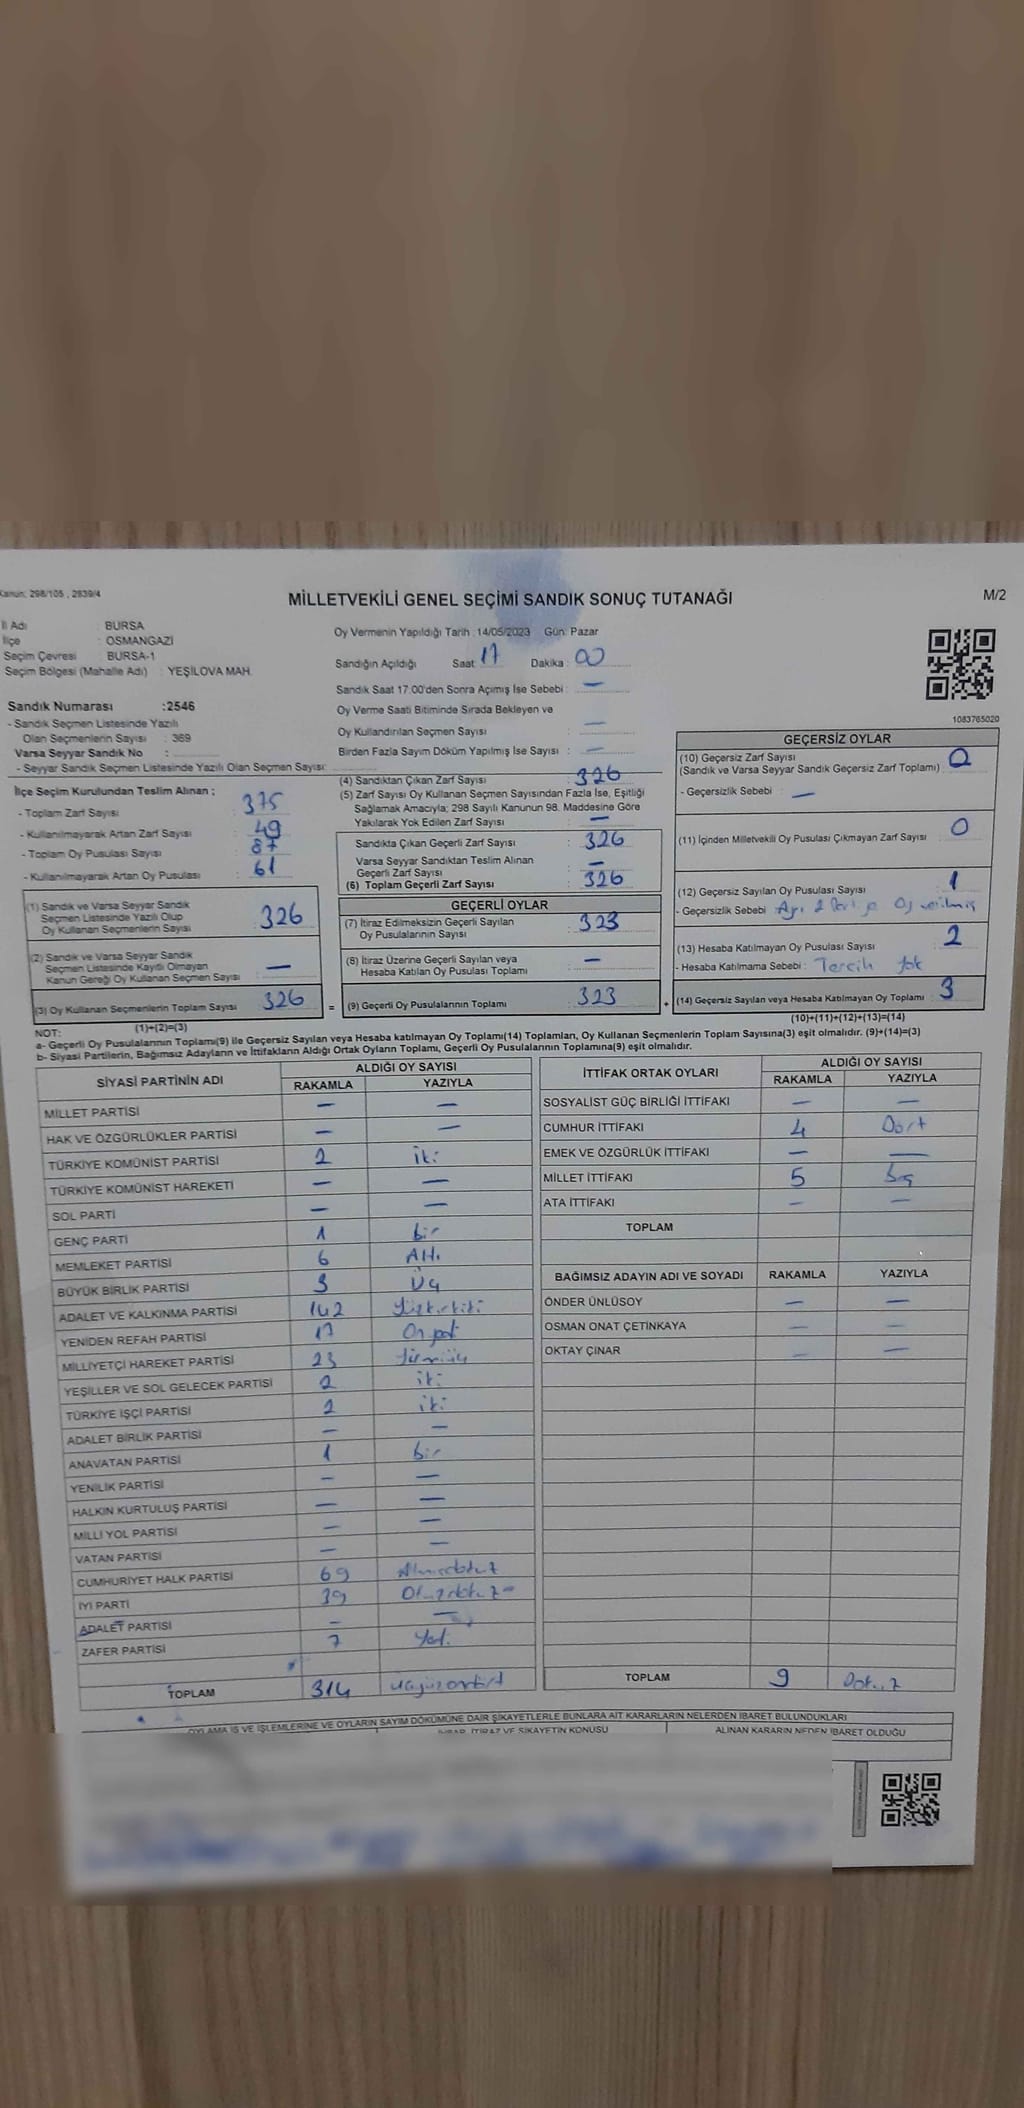 Kanun: 298/105 , 2839/4
MİLLETVEKİLİ GENEL SEÇİMİ SANDIK SONUÇ TUTANAĞI
M/2
İl Adı : BURSA
İlçe : OSMANGAZİ
Seçim Çevresi : BURSA-1
Seçim Bölgesi (Mahalle Adı) : YEŞİLOVA MAH.
Sandık Numarası :2546
- Sandık Seçmen Listesinde Yazılı
Olan Seçmenlerin Sayısı : 369
Varsa Seyyar Sandık No :
- Seyyar Sandık Seçmen Listesinde Yazılı Olan Seçmen Sayısı:
İlçe Seçim Kurulundan Teslim Alınan ;
- Toplam Zarf Sayısı : 375
- Kullanılmayarak Artan Zarf Sayısı : 49
- Toplam Oy Pusulası Sayısı : 87
- Kullanılmayarak Artan Oy Pusulası : 61
(1) Sandık ve Varsa Seyyar Sandık
Seçmen Listesinde Yazılı Olup
Oy Kullanan Seçmenlerin Sayısı 326
(2) Sandık ve Varsa Seyyar Sandık
Seçmen Listesinde Kayıtlı Olmayan
Kanun Gereği Oy Kullanan Seçmen Sayısı : —
(3) Oy Kullanan Seçmenlerin Toplam Sayısı 326
(1)+(2)=(3)
Oy Vermenin Yapıldığı Tarih : 14/05/2023 Gün: Pazar
Sandığın Açıldığı Saat : 17 Dakika : 00
Sandık Saat 17.00'den Sonra Açımış İse Sebebi : —
Oy Verme Saati Bitiminde Sırada Bekleyen ve
Oy Kullandırılan Seçmen Sayısı : —
Birden Fazla Sayım Döküm Yapılmış İse Sayısı : —
(4) Sandıktan Çıkan Zarf Sayısı : 326
(5) Zarf Sayısı Oy Kullanan Seçmen Sayısından Fazla İse, Eşitliği
Sağlamak Amacıyla; 298 Sayılı Kanunun 98. Maddesine Göre
Yakılarak Yok Edilen Zarf Sayısı : —
Sandıkta Çıkan Geçerli Zarf Sayısı : 326
Varsa Seyyar Sandıktan Teslim Alınan
Geçerli Zarf Sayısı : —
(6) Toplam Geçerli Zarf Sayısı : 326
GEÇERLİ OYLAR
(7) İtiraz Edilmeksizin Geçerli Sayılan
Oy Pusulalarının Sayısı : 323
(8) İtiraz Üzerine Geçerli Sayılan veya
Hesaba Katılan Oy Pusulası Toplamı : —
= (9) Geçerli Oy Pusulalarının Toplamı : 323
1083765020
GEÇERSİZ OYLAR
(10) Geçersiz Zarf Sayısı
(Sandık ve Varsa Seyyar Sandık Geçersiz Zarf Toplamı) : 0
- Geçersizlik Sebebi : —
(11) İçinden Milletvekili Oy Pusulası Çıkmayan Zarf Sayısı : 0
(12) Geçersiz Sayılan Oy Pusulası Sayısı : 1
- Geçersizlik Sebebi : Ayrı 2 Oy verilmiş
(13) Hesaba Katılmayan Oy Pusulası Sayısı : 2
- Hesaba Katılmama Sebebi : Tercih yok
+ (14) Geçersiz Sayılan veya Hesaba Katılmayan Oy Toplamı : 3
(10)+(11)+(12)+(13)=(14)
NOT:
a- Geçerli Oy Pusulalarının Toplamı(9) ile Geçersiz Sayılan veya Hesaba katılmayan Oy Toplamı(14) Toplamları, Oy Kullanan Seçmenlerin Toplam Sayısına(3) eşit olmalıdır. (9)+(14)=(3)
b- Siyasi Partilerin, Bağımsız Adayların ve İttifakların Aldığı Ortak Oyların Toplamı, Geçerli Oy Pusulalarının Toplamına(9) eşit olmalıdır.
SİYASİ PARTİNİN ADI
ALDIĞI OY SAYISI
RAKAMLA YAZIYLA
MİLLET PARTİSİ — —
HAK VE ÖZGÜRLÜKLER PARTİSİ — —
TÜRKİYE KOMÜNİST PARTİSİ 2 iki
TÜRKİYE KOMÜNİST HAREKETİ — —
SOL PARTİ — —
GENÇ PARTİ 1 bir
MEMLEKET PARTİSİ 6 Altı
BÜYÜK BİRLİK PARTİSİ 3 Üç
ADALET VE KALKINMA PARTİSİ 142
YENİDEN REFAH PARTİSİ 17 On yedi
MİLLİYETÇİ HAREKET PARTİSİ 23 Yirmiüç
YEŞİLLER VE SOL GELECEK PARTİSİ 2 iki
TÜRKİYE İŞÇİ PARTİSİ 2 iki
ADALET BİRLİK PARTİSİ — —
ANAVATAN PARTİSİ 1 bir
YENİLİK PARTİSİ — —
HALKIN KURTULUŞ PARTİSİ — —
MİLLİ YOL PARTİSİ — —
VATAN PARTİSİ — —
CUMHURİYET HALK PARTİSİ 69 Altmışdokuz
İYİ PARTİ 39 Otuzdokuz
ADALET PARTİSİ — —
ZAFER PARTİSİ 7 Yedi
TOPLAM 314 üçyüzondört
İTTİFAK ORTAK OYLARI
ALDIĞI OY SAYISI
RAKAMLA YAZIYLA
SOSYALİST GÜÇ BİRLİĞİ İTTİFAKI — —
CUMHUR İTTİFAKI 4 Dört
EMEK VE ÖZGÜRLÜK İTTİFAKI — —
MİLLET İTTİFAKI 5 Beş
ATA İTTİFAKI — —
TOPLAM
BAĞIMSIZ ADAYIN ADI VE SOYADI RAKAMLA YAZIYLA
ÖNDER ÜNLÜSOY — —
OSMAN ONAT ÇETİNKAYA — —
OKTAY ÇINAR — —
TOPLAM 9 Dokuz
OYLAMA İŞ VE İŞLEMLERİNE VE OYLARIN SAYIM DÖKÜMÜNE DAİR ŞİKAYETLERLE BUNLARA AİT KARARLARIN NELERDEN İBARET BULUNDUKLARI
İHBAR, İTİRAZ VE ŞİKAYETİN KONUSU
ALINAN KARARIN NEDEN İBARET OLDUĞU